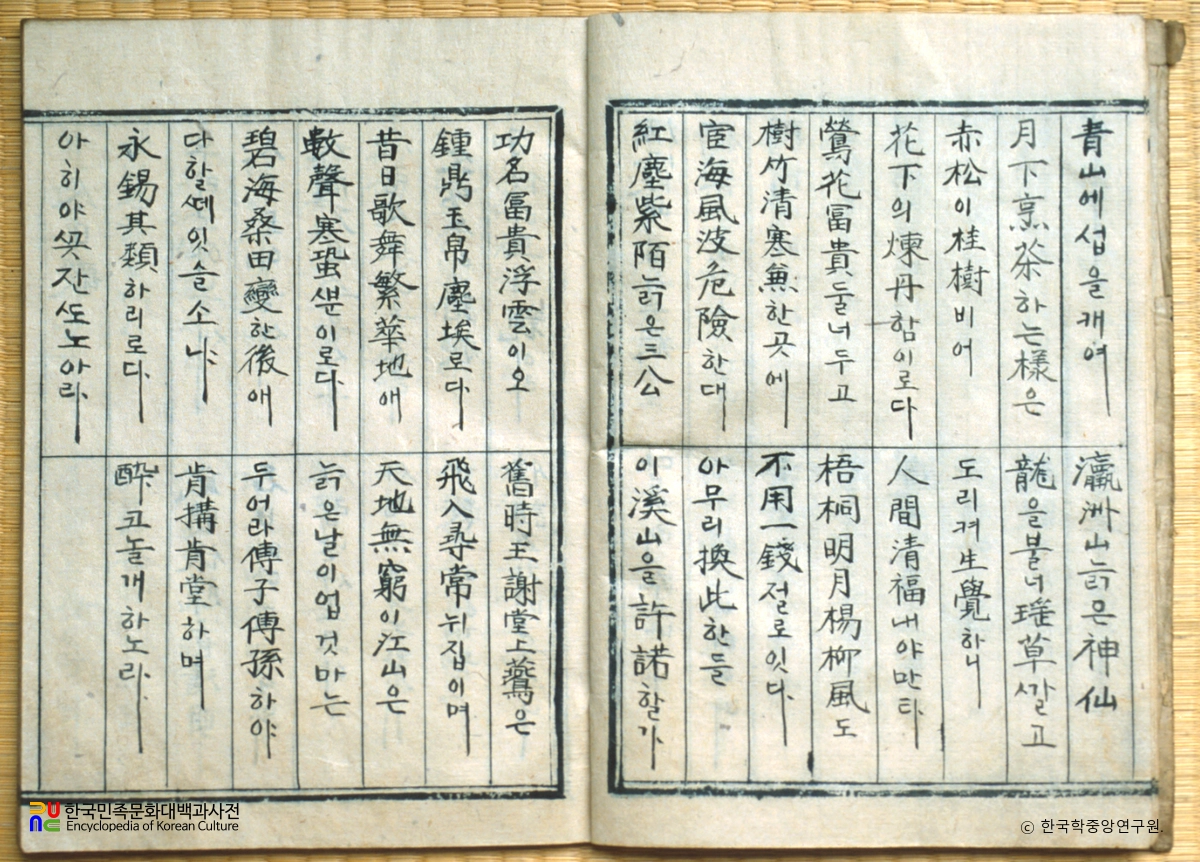 青山에섭을개여 瀛洲山늙은神仙
月下烹茶하는樣은 龍을불너瑤草ᄭᅡᆯ고
赤松이桂樹비어 도리켜生覺하니
花下의煉丹함이로다 人間清福내야만타
鶯花冨貴둘너두고 梧桐明月楊柳風도
樹竹清寒無한곳에 不用一錢절로잇다
宦海風波危險한대 아무리換此한들
紅塵紫陌늙은三公 이溪山을許諾할가
功名冨貴浮雲이오 舊時王謝堂上鷰은
鍾鼎玉帛塵埃로다 飛入尋常뉘집이며
昔日歌舞繁華地애 天地無窮이江山은
數聲寒蛩ᄲᅮᆫ이로다 늙은날이업것마는
碧海桑田變한後애 두어라傳子傳孫하야
다할ᄯᅦ잇슬소냐 肯搆肯堂하며
永錫其類하리로다 醉코놀개하노라
아히야 잔ᄯᅩ노아라
한국민족문화대백과사전
Encyclopedia of Korean Culture
© 한국학중앙연구원.